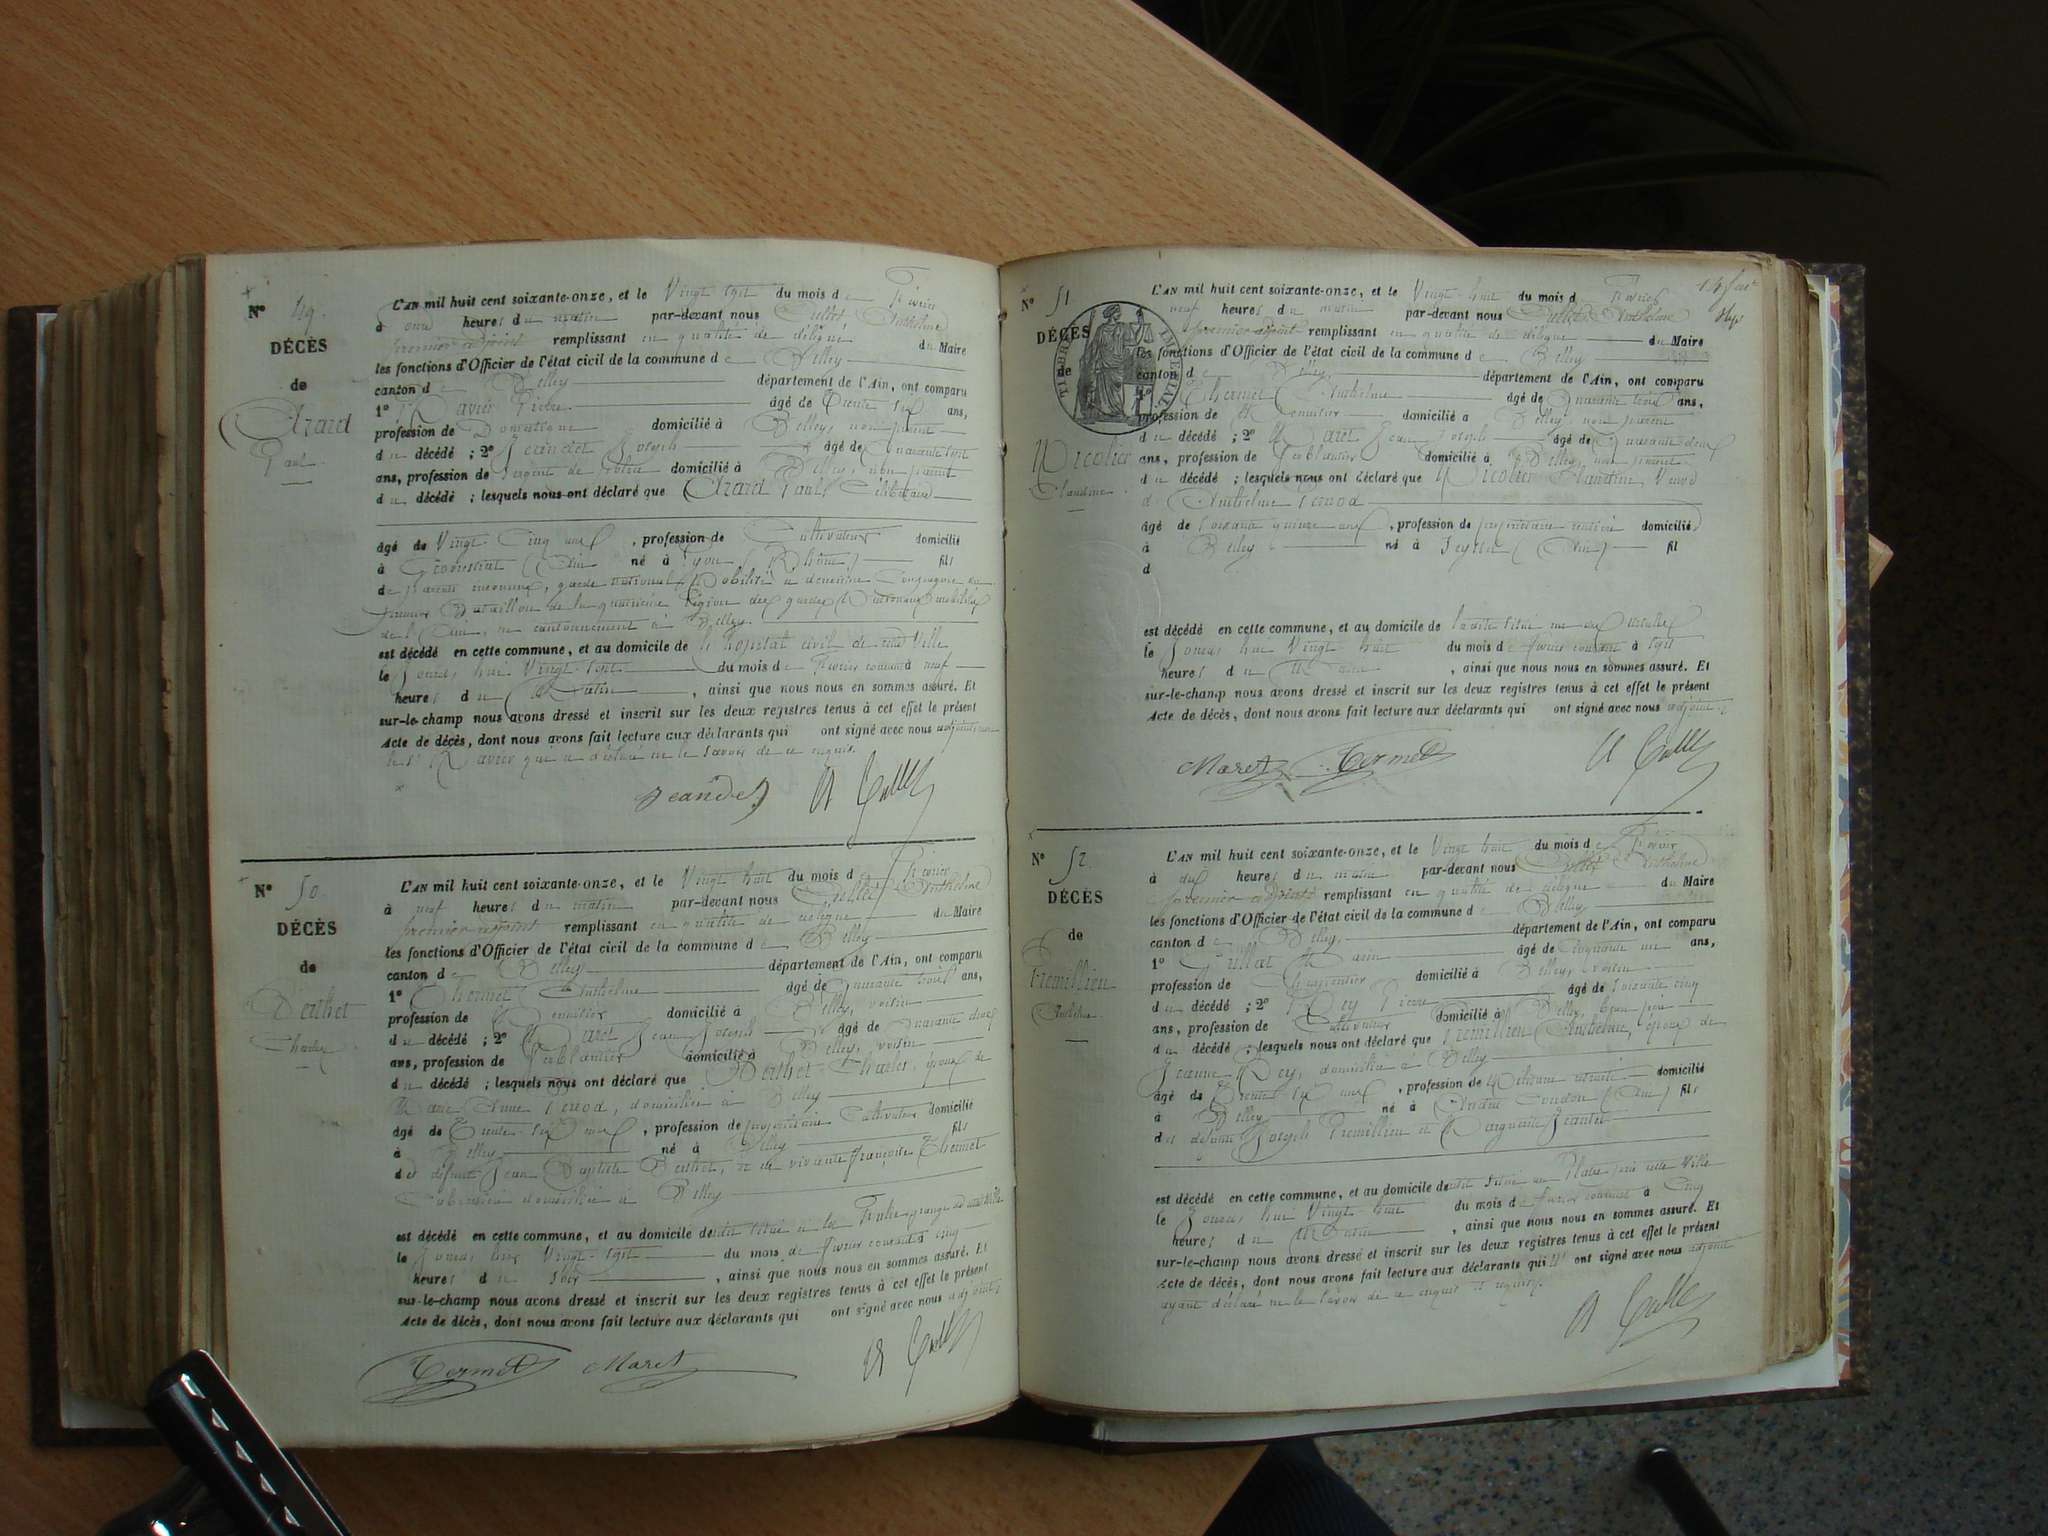 N° 49.
DÉCÈS
de
Paul
L'AN mil huit cent soixante-onze, et le Vingt sept du mois de Février
à onze heures du matin par-devant nous Anthelme
premier adjoint remplissant en qualité de délégué du Maire
les fonctions d'Officier de l'état civil de la commune de Belley
canton de Belley département de l'Ain, ont comparu
1° Ravier Pierre âgé de Trente six ans,
profession de Domestique domicilié à Belley, non parent
du décédé ; 2° Jeandet Joseph âgé de quarante sept
ans, profession de Sergent de Police domicilié à Belley, non parent
du décédé ; lesquels nous ont déclaré que Paul Célibataire
âgé de Vingt Cinq ans, profession de Cultivateur domicilié
à (Ain) né à Lyon (Rhône) fils
de parents inconnus, garde national mobilisé a deuxième Compagnie du
premier Bataillon de la quatrième légion des gardes nationaux mobilisés
de l'Ain, en cantonnement à Belley.
est décédé en cette commune, et au domicile de l'hopital civil de cette Ville
le Jourd'hui Vingt sept du mois de Février courant à neuf
heures du Matin, ainsi que nous nous en sommes assuré. Et
sur-le-champ nous avons dressé et inscrit sur les deux registres tenus à cet effet le présent
Acte de décès, dont nous avons fait lecture aux déclarants qui ont signé avec nous adjoint non
le Sr Ravier qui a déclaré ne le savoir de ce enquis.
Jeandet
N° 50.
DÉCÈS
de
Berthet
Charles
L'AN mil huit cent soixante-onze, et le Vingt huit du mois de Février
à neuf heures du matin par-devant nous Anthelme
premier adjoint remplissant en qualité de délégué du Maire
les fonctions d'Officier de l'état civil de la commune de Belley
canton de Belley département de l'Ain, ont comparu
1° Thermet Anthelme âgé de quarante trois ans,
profession de Menuisier domicilié à Belley, voisin
du décédé ; 2° Maret Jean Joseph âgé de quarante deux
ans, profession de Ferblantier domicilié à Belley, voisin
du décédé ; lesquels nous ont déclaré que Berthet Charles, époux de
Marie Anne domiciliée à Belley
âgé de Trente six ans, profession de propriétaire Cultivateur domicilié
à Belley né à Belley fils
de défunt Jean Baptiste Berthet, et de vivante françoise Thermet
domiciliée à Belley
est décédé en cette commune, et au domicile de
le Jourd'hier Vingt sept du mois de février courant à cinq
heures du Soir, ainsi que nous nous en sommes assuré. Et
sur-le-champ nous avons dressé et inscrit sur les deux registres tenus à cet effet le présent
Acte de décès, dont nous avons fait lecture aux déclarants qui ont signé avec nous adjoint
Termet Maret
N° 51
DÉCÈS
de
Nicolier
Claudine
TIMBRE IMPÉRIAL
L'AN mil huit cent soixante-onze, et le Vingt huit du mois de Février
neuf heures du matin par-devant nous Anthelme
premier adjoint remplissant en qualité de délégué du Maire
les fonctions d'Officier de l'état civil de la commune de Belley
canton de Belley département de l'Ain, ont comparu
1° Thermet Anthelme âgé de Quarante trois ans,
profession de Menuisier domicilié à Belley, non parent
du décédé ; 2° Maret Jean Joseph âgé de Quarante deux
ans, profession de Ferblantier domicilié à Belley, non parent
du décédé ; lesquels nous ont déclaré que Nicolier Claudine Veuve
d'Anthelme
âgé de soixante quinze ans, profession de propriétaire rentière domicilié
à Belley né à Peyrieu (Ain) fil
d
est décédé en cette commune, et au domicile de
le Jourd'hui Vingt huit du mois de février courant à sept
heures du Matin, ainsi que nous nous en sommes assuré. Et
sur-le-champ nous avons dressé et inscrit sur les deux registres tenus à cet effet le présent
Acte de décès, dont nous avons fait lecture aux déclarants qui ont signé avec nous adjoint
Maret Termet
N° 52.
DÉCÈS
de
Premillieu
Anthelme
L'AN mil huit cent soixante-onze, et le Vingt huit du mois de Février
à dix heures du matin par-devant nous Anthelme
premier adjoint remplissant en qualité de délégué du Maire
les fonctions d'Officier de l'état civil de la commune de Belley
canton de Belley, département de l'Ain, ont comparu
1° Marin âgé de cinquante un ans,
profession de Charpentier domicilié à Belley, voisin
du décédé ; 2° Rey Pierre âgé de soixante cinq
ans, profession de Cultivateur domicilié à Belley, beau père
du décédé ; lesquels nous ont déclaré que Premillieu Anthelme, époux de
Jeanne Rey, domiciliée à Belley
âgé de Trente six ans, profession de domicilié
à Belley né à (Ain) fils
de défunt Joseph Premillieu et Marguerite Jeantet
est décédé en cette commune, et au domicile de
le Jourd'hui Vingt huit du mois de février courant à Cinq
heures du Matin, ainsi que nous nous en sommes assuré. Et
sur-le-champ nous avons dressé et inscrit sur les deux registres tenus à cet effet le présent
Acte de décès, dont nous avons fait lecture aux déclarants qui ont signé avec nous adjoint
ayant déclaré ne le savoir de ce enquis et requis.